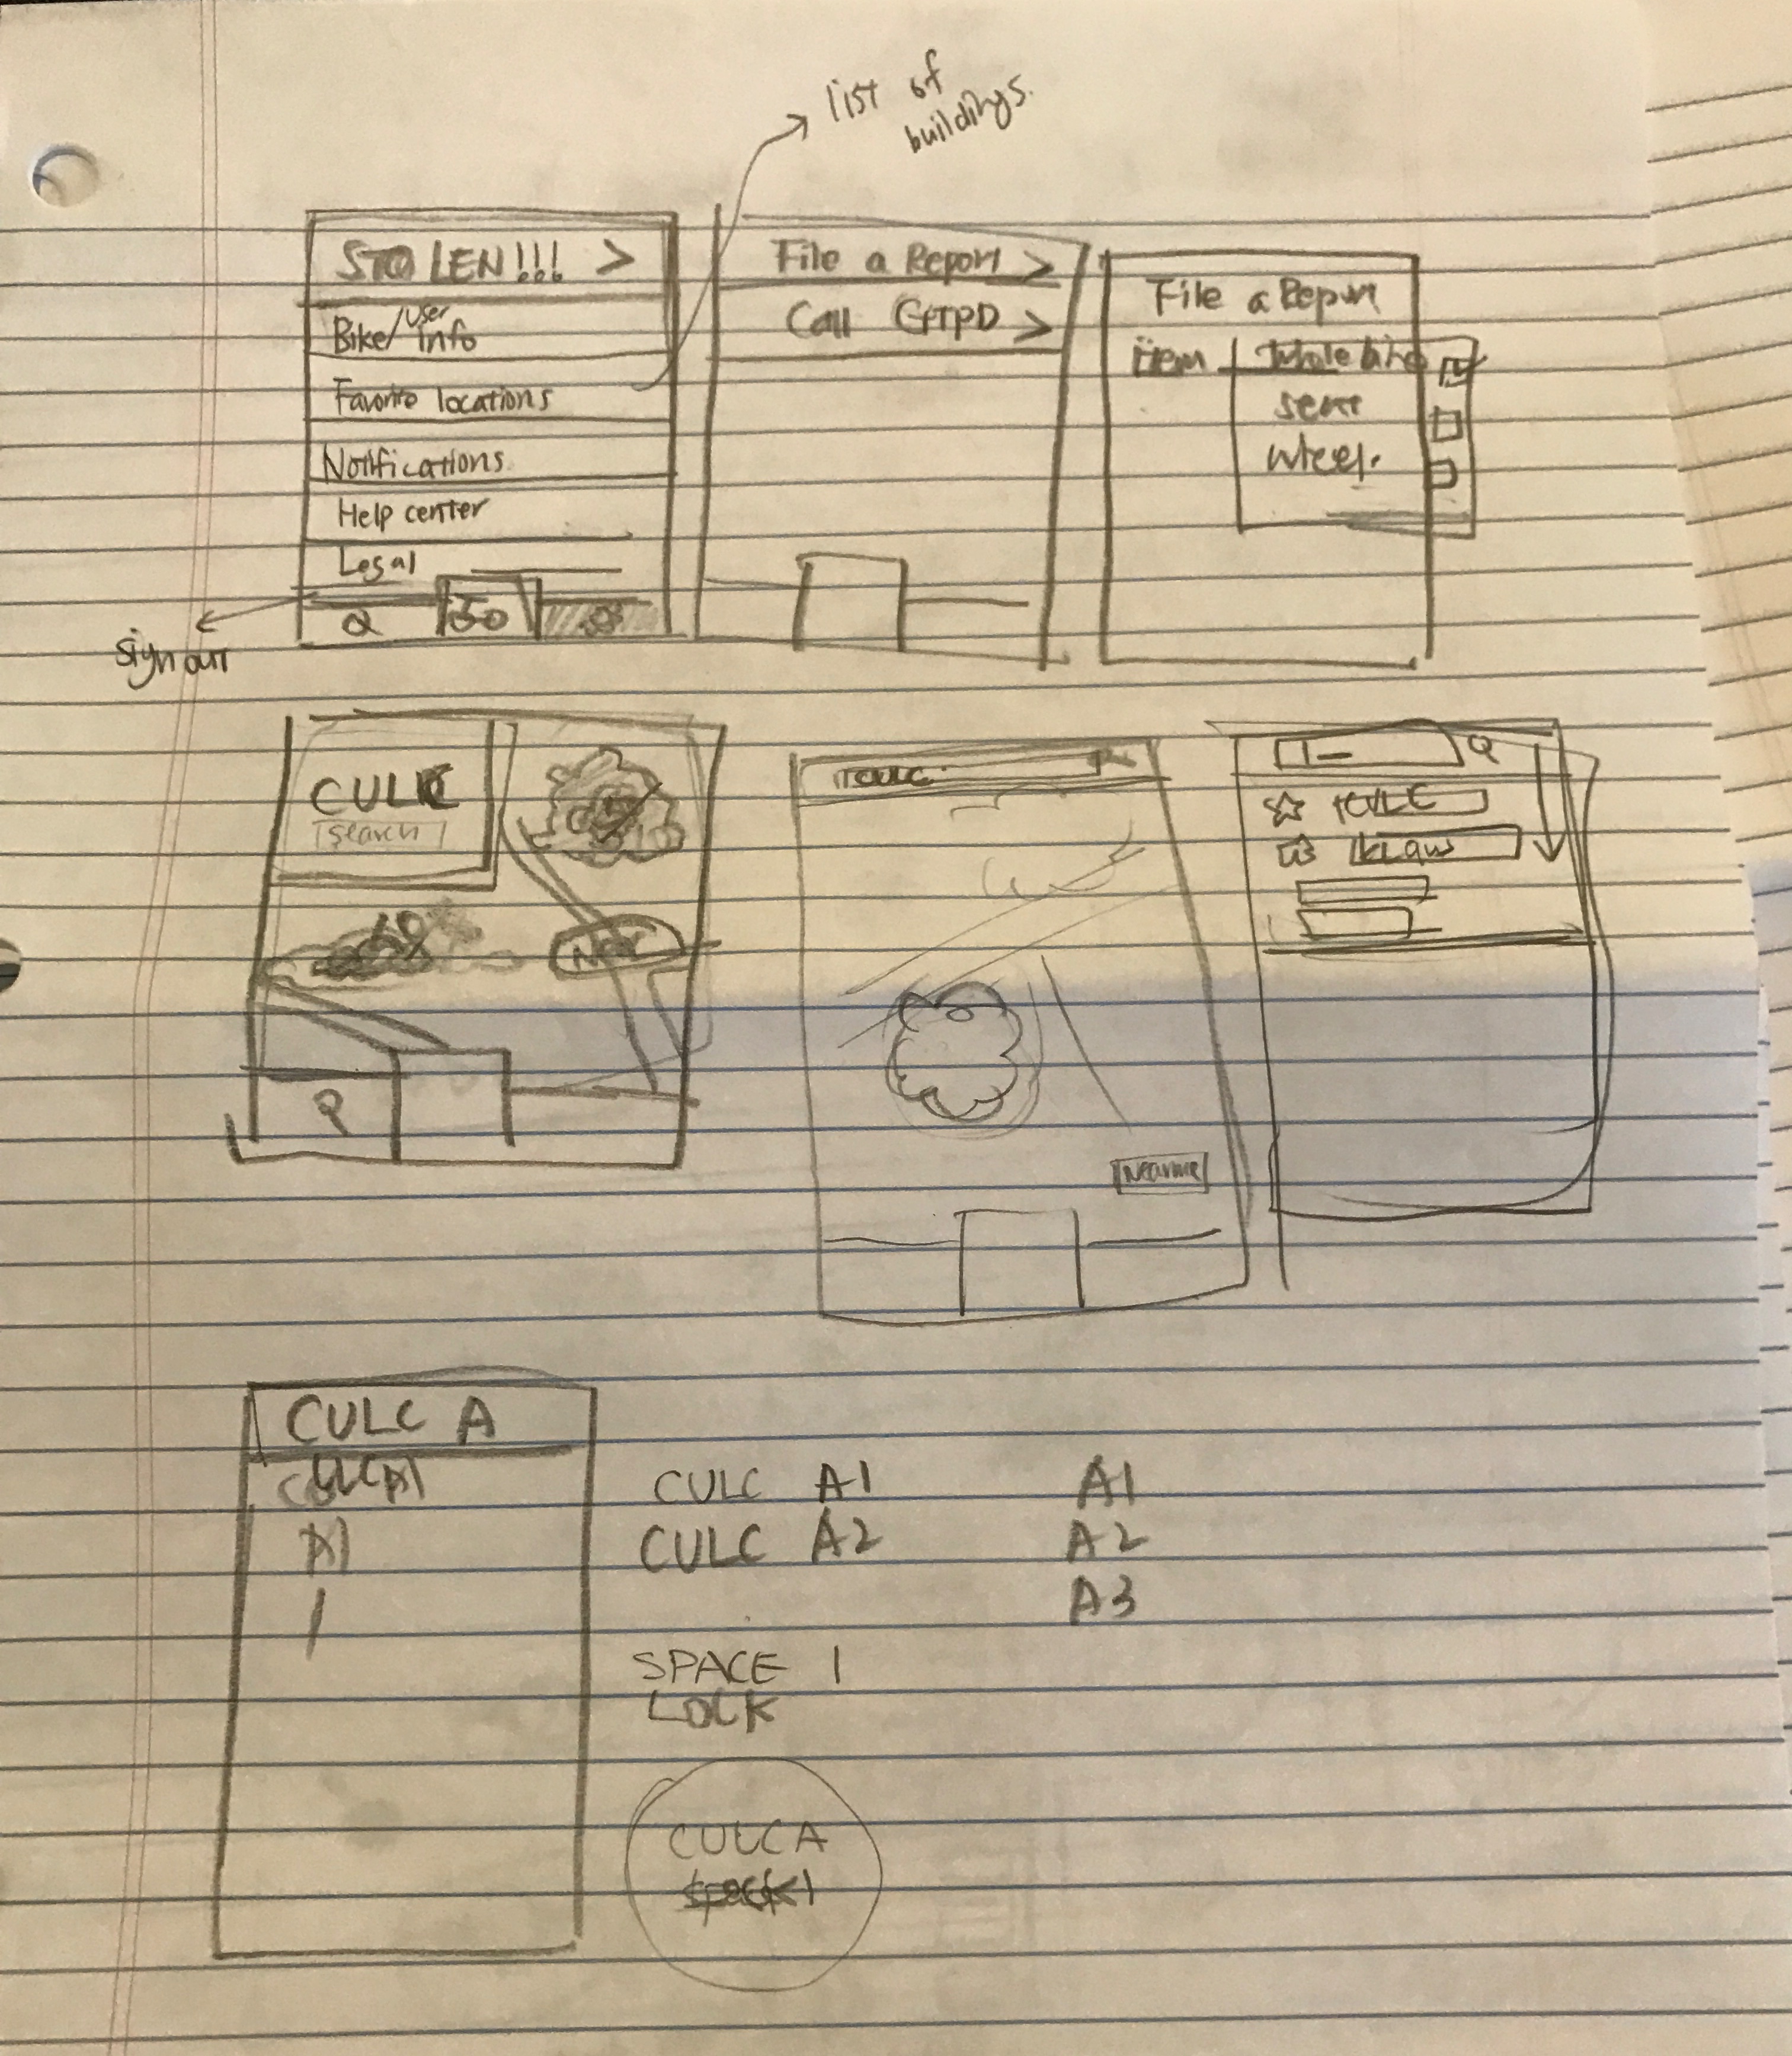 list of
buildings.
STOLEN!!! >
Bike/User info
Favorite locations
Notifications
Help center
Legal
sign out
File a Report >
Call GTPD >
File a Report
Item
Whole bike
seat
wheel.
CULC
search
CULC
Near me
CULC
CULC A
CULC A1
A1
1
CULC A1
CULC A2
A1
A2
A3
SPACE 1
LOCK
CULC A